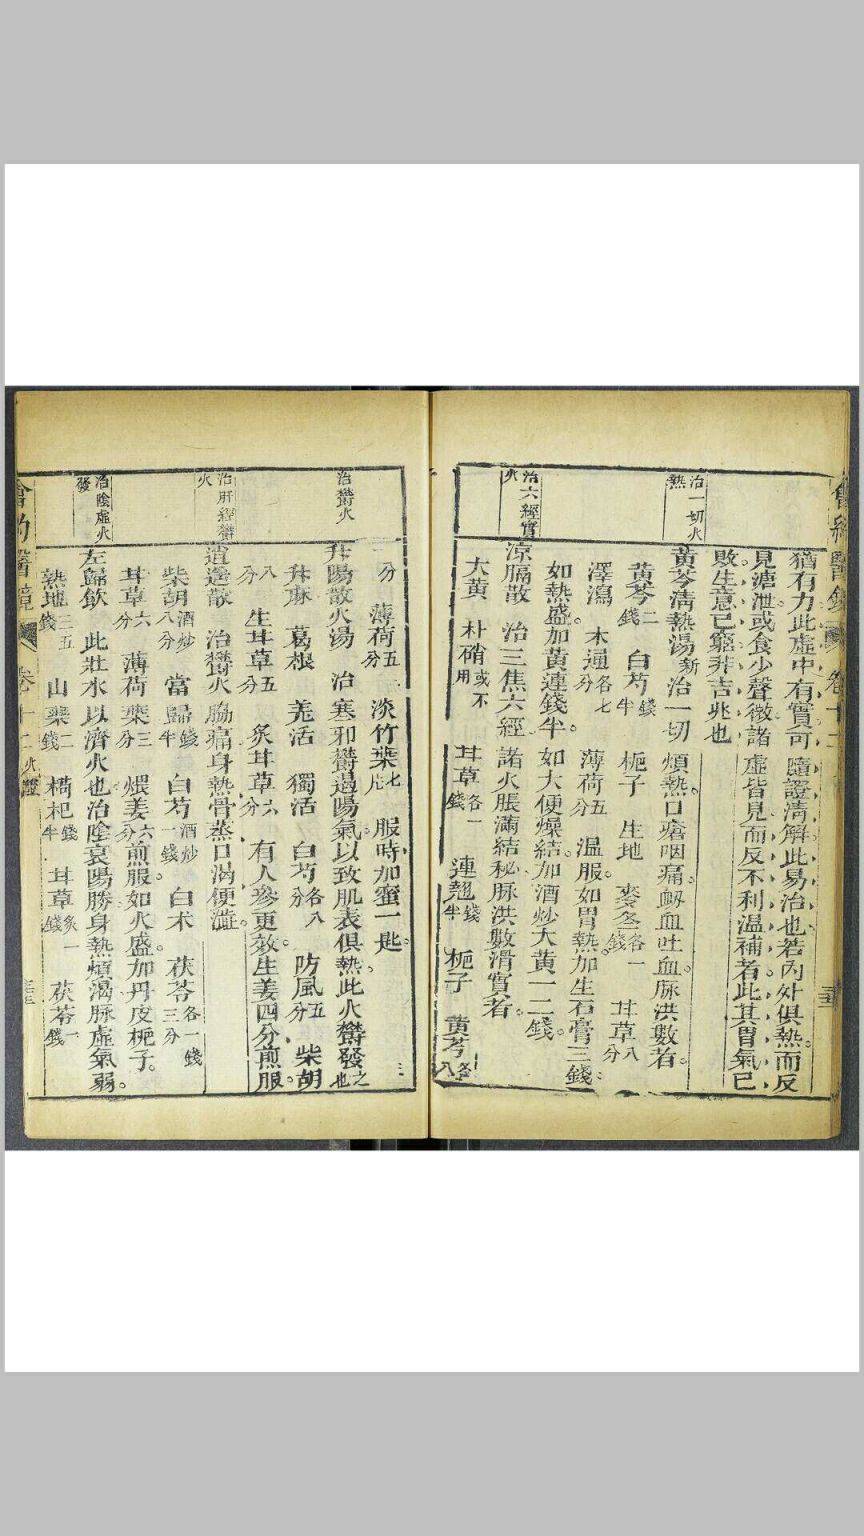 猶有力此虛中有實可隨證清解此易治也若內外俱熱而反
見溏泄或食少聲微諸虛皆見而反不利温補者此其胃氣已
敗生意已窮非吉兆也
治一切火熱
黃芩清熱湯新 治一切煩熱口瘡咽痛衂血吐血脉洪數者
黃芩二錢 白芍錢半 梔子 生地 麥冬各一錢 甘草八分
澤瀉 木通各七分 薄荷五分 温服如胃熱加生石膏三錢
如熱盛加黃連錢半 如大便燥結加酒炒大黃一二錢
治六經實火
涼膈散 治三焦六經諸火脹滿結秘脉洪數滑實者
大黃 朴硝或不用 甘草各一錢 連翹錢半 梔子 黃芩各八
分 薄荷五分 淡竹葉七片 服時加蜜一匙
治鬱火
升陽散火湯 治寒邪鬱遏陽氣以致肌表俱熱此火鬱發之也
升麻 葛根 羗活 獨活 白芍各八分 防風五分 柴胡
八分 生甘草五分 炙甘草六分 有人參更效生姜四分煎服
治肝經鬱火
逍遙散 治鬱火脇痛身熱骨蒸口渴便澁
柴胡酒炒八分 當歸錢半 白芍酒炒一錢 白朮 茯苓各一錢三分
甘草六分 薄荷葉三分 煨姜六分煎服如火盛加丹皮梔子
治陰虛火發
左歸飲 此壯水以濟火也治陰衰陽勝身熱煩渴脉虛氣弱
熟地三五錢 山藥二錢 枸杞錢半 甘草炙一錢 茯苓一錢
會約醫鏡 卷十二 火證